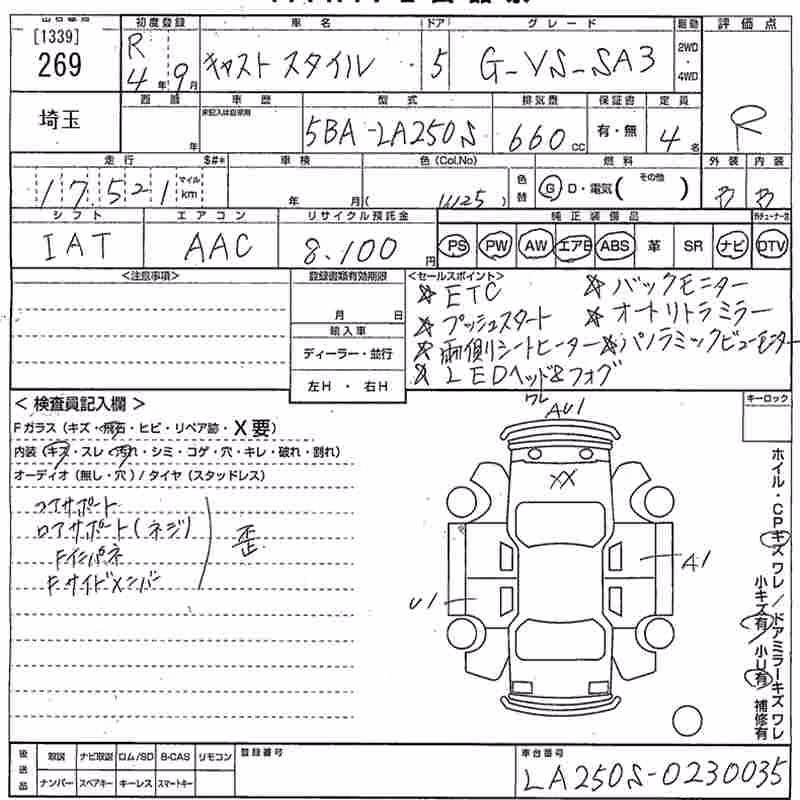 [1339]
269
初度登録 車名 ドア グレード 駆動 評価点
R4年9月 キャスト スタイル 5 G-VS-SA3 2WD・4WD R
埼玉
年 車歴 型式 排気量 保証書 定員
未記入は自家用
5BA-LA250S 660cc 有・無 4名
走行 $#* 車検 色(Col.No) 色替 燃料 外装 内装
17521 マイル km 年 月( 1L125 ) G D・電気( その他 ) B B
シフト エアコン リサイクル預託金 純正装備品
IAT AAC 8.100円 PS PW AW エアB ABS 革 SR ナビ DTV
<注意事項> 登録書類有効期限 <セールスポイント>
月 日
輸入車
ディーラー・並行
左H ・ 右H
☆ETC ☆バックモニター
☆プッシュスタート ☆オートリトラミラー
☆両側シートヒーター ☆パノラミックビューモニター
☆LEDヘッド&フォグ
<検査員記入欄> キーロック
Fガラス(キズ・飛石・ヒビ・リペア跡・X要)
内装(キズ・スレ・汚れ・シミ・コゲ・穴・キレ・破れ・割れ)
オーディオ(無し・穴)/タイヤ(スタッドレス)
コアサポート
ロアサポート(ネジ)
Fインパネ
Fサイドメンバー
歪
ワレ
AU1
XX
A1
U1
ホイル・CPキズ ワレ/ドアミラーキズ ワレ
小キズ有/小U有 補修有
後送品 取説 ナビ取説 ロム/SD B-CAS リモコン
ナンバー スペアキー キーレス スマートキー
登録番号
車台番号
LA250S-0230035